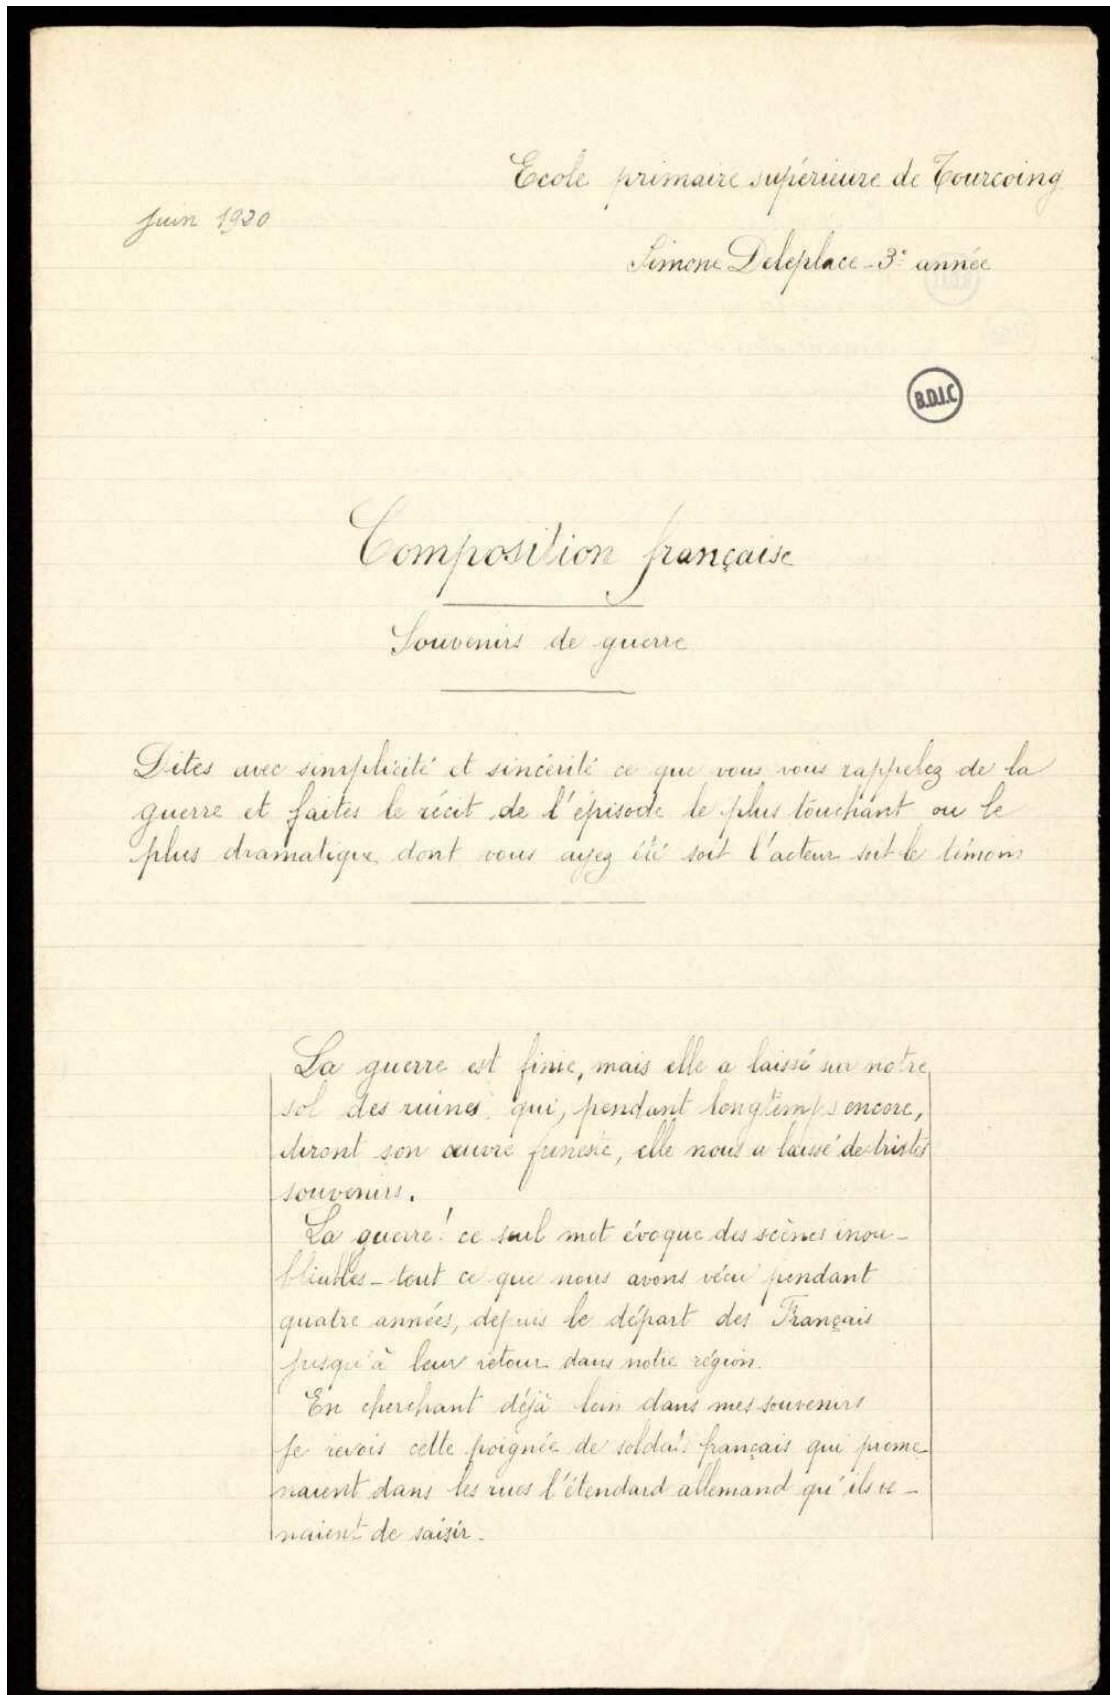 Ecole primaire supérieure de Tourcoing
Juin 1920
Simone Deleplace - 3e année
B.D.I.C
Composition française
Souvenirs de guerre
Dites avec simplicité et sincérité ce que vous vous rappelez de la
guerre et faites le récit de l'épisode le plus touchant ou le
plus dramatique dont vous ayez été soit l'acteur soit le témoin
La guerre est finie, mais elle a laissé sur notre
sol des ruines qui, pendant longtemps encore,
diront son œuvre funeste, elle nous a laissé de tristes
souvenirs.
La guerre! ce seul mot évoque des scènes inou-
bliables - tout ce que nous avons vécu pendant
quatre années, depuis le départ des Français
jusqu'à leur retour dans notre région.
En cherchant déjà loin dans mes souvenirs
je revois cette poignée de soldats français qui prome-
naient dans les rues l'étendard allemand qu'ils ve-
naient de saisir.